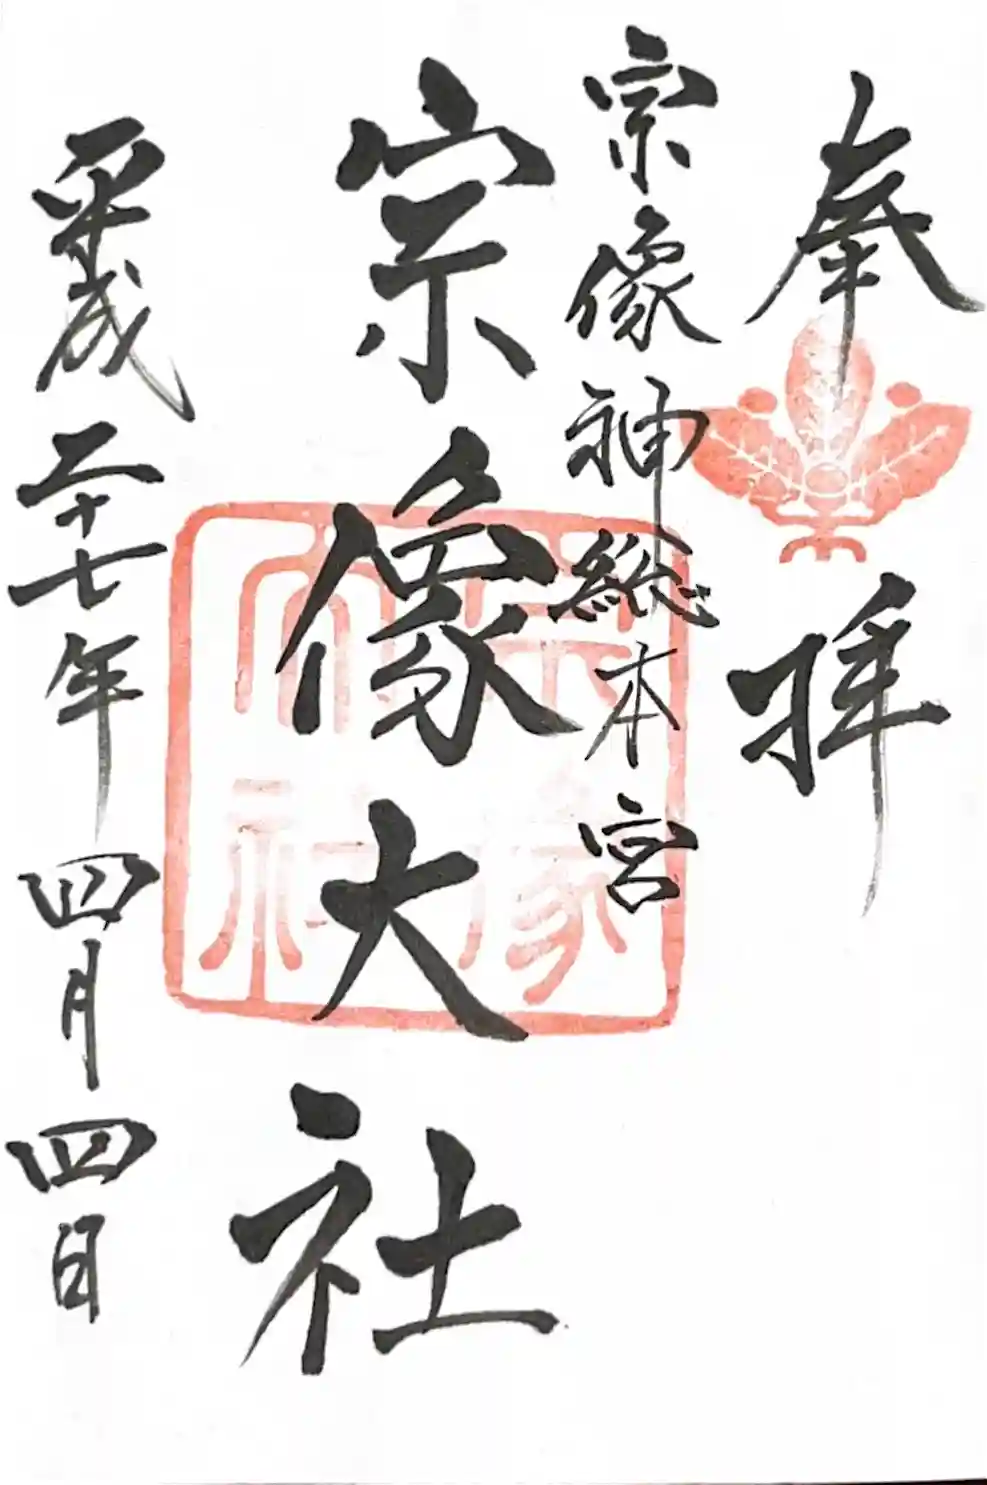 奉拝
宗像神総本宮
宗像大社
平成二十七年四月四日
宗像大社